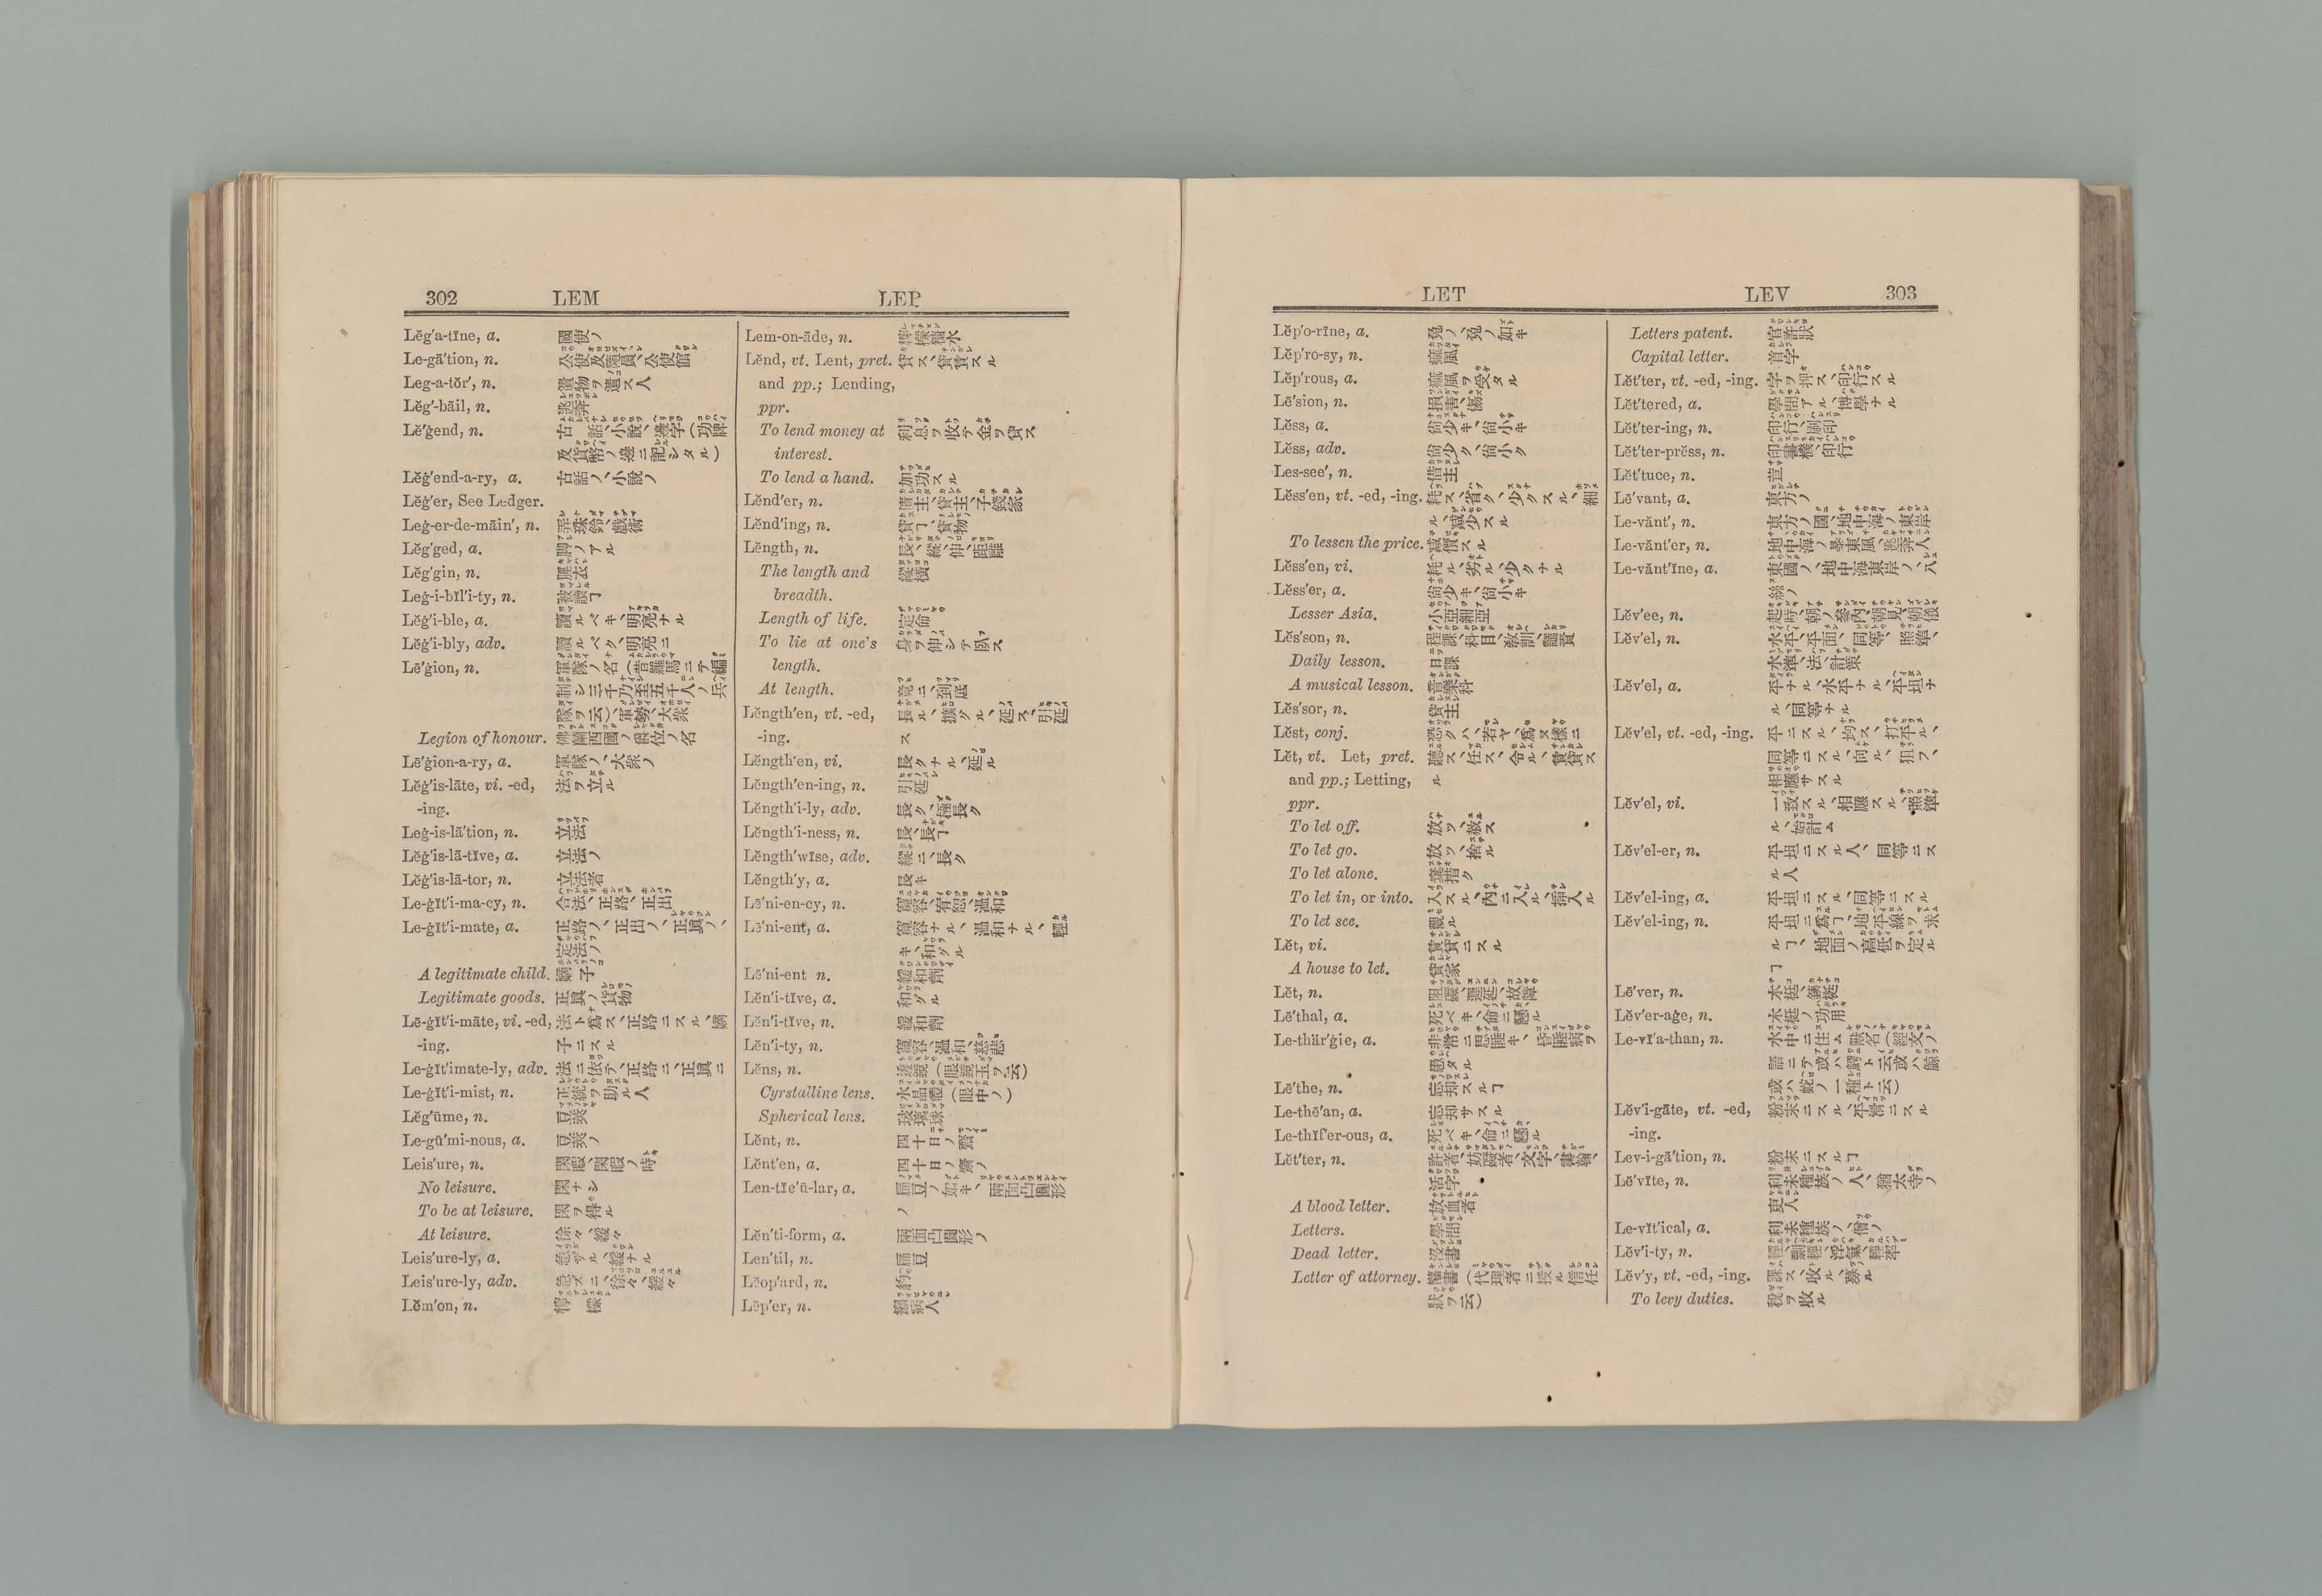 302 LEM LEP
Lĕg′a-tīne, a. 國使ノ
Le-gā′tion, n. 公使及隨員、公使館
Leg-a-tŏr′, n. 遺物ヲ遺ス人
Lĕg′-bāil, n. 逃奔
Lĕ′ġend, n. 古話、小說、邊字(功牌
及貨幣ノ邊ニ記シタル)
Lĕġ′end-a-ry, a. 古話ノ、小說ノ
Lĕġ′er, See Ledger.
Leġ-er-de-māin′, n. 弄珠鈴、戲術
Lĕg′ged, a. 脚ノアル
Lĕg′gin, n. 脾衣
Leġ-i-bĭl′i-ty, n. 被讀ヿ
Lĕġ′i-ble, a. 讀ルベキ、明亮ナル
Lĕġ′i-bly, adv. 讀ルベク、明亮ニ
Lē′ġion, n. 軍隊ノ名(昔羅馬ニテ編
制シ三千乃至五千人ノ兵
隊ヲ云)、軍勢、大衆
Legion of honour. 佛蘭西國ノ爵位ノ名
Lē′ġion-a-ry, a. 軍隊ノ、大衆ノ
Lĕġ′is-lāte, vi. -ed, 法ヲ立ル
-ing.
Leġ-is-lā′tion, n. 立法
Lĕġ′is-lā-tĭve, a. 立法ノ
Lĕġ′is-lā-tor, n. 立法者
Le-ġĭt′i-ma-cy, n. 合法、正路、正出
Le-ġĭt′i-mate, a. 正路ノ、正出ノ、正眞ノ、
定法ノ
A legitimate child. 嫡子
Legitimate goods. 正眞ノ貨物
Lē-ġĭt′i-māte, vi. -ed, 法ト爲ス、正路ニスル、嫡
-ing. 子ニスル
Le-ġĭt′imate-ly, adv. 法ニ依テ、正路ニ、正眞ニ
Le-ġĭt′i-mist, n. 正統ヲ助ル人
Lĕg′ūme, n. 豆莢
Le-gū′mi-nous, a. 豆莢ノ
Leis′ure, n. 閑暇、閑暇ノ時
No leisure. 閑ナシ
To be at leisure. 閑ヲ得ル
At leisure. 徐々、緩々
Leis′ure-ly, a. 急ザル、緩ナル
Leis′ure-ly, adv. 急ズニ、徐々、緩々
Lĕm′on, n. 檸檬
Lem-on-āde, n. 檸檬糖水
Lĕnd, vt. Lent, pret. 貸ス、貸賃スル
and pp.; Lending,
ppr.
To lend money at 利息ヲ收テ金ヲ貸ス
interest.
To lend a hand. 加功スル
Lĕnd′er, n. 債主、貸主、子錢家
Lĕnd′ing, n. 貸ヿ、貸物
Lĕngth, n. 長、縱、伸、距離
The length and 縱橫
breadth.
Length of life. 定命
To lie at one's 身ヲ伸シテ臥ス
length.
At length. 竟ニ、到底
Lĕngth′en, vt. -ed, 長ル、擴グル、延ス、引延
-ing. ス
Lĕngth′en, vi. 長クナル、延ル
Lĕngth′en-ing, n. 引延
Lĕngth′i-ly, adv. 長ク、稍長ク
Lĕngth′i-ness, n. 長、長ヿ
Lĕngth′wīse, adv. 縱ニ、長ク
Lĕngth′y, a. 長キ
Lē′ni-en-cy, n. 寬容、宥恕、溫和
Lē′ni-ent, a. 寬容ナル、溫和ナル、輕
キ、和グル
Lē′ni-ent n. 緩和劑
Lĕn′i-tĭve, a. 和グル
Lĕn′i-tĭve, n. 緩和劑
Lĕn′i-ty, n. 寬容、溫和、慈悲
Lĕns, n. 透鏡(眼鏡玉ヲ云)
Cyrstalline lens. 水晶體(眼中ノ)
Spherical lens. 玻璃球
Lĕnt, n. 四十日ノ齋
Lĕnt′en, a. 四十日ノ齋ノ
Len-tĭe′ū-lar, a. 扁豆ノ如キ、兩面凸圓形
ノ
Lĕn′ti-form, a. 兩面凸圓形ノ
Len′til, n. 扁豆
Lĕop′ard, n. 豹
Lĕp′er, n. 癩病人
LET LEV 303
Lĕp′o-rīne, a. 兔ノ、兔ノ如キ
Lĕp′ro-sy, n. 癘風
Lĕp′rous, a. 癘風ヲ受タル
Lē′sion, n. 損害、傷
Lĕss, a. 尙少キ、尙小キ
Lĕss, adv. 尙少ク、尙小ク
Les-see′, n. 借主
Lĕss′en, vt. -ed, -ing. 耗ス、省ク、少クスル、細
ル、減少スル
To lessen the price. 減價スル
Lĕss′en, vi. 耗ル、劣ル、少クナル
Lĕss′er, a. 尙少キ、尙小キ
Lesser Asia. 小亞細亞
Lĕs′son, n. 程課、科目、敎訓、譴責
Daily lesson. 日課
A musical lesson. 音樂科
Lĕs′sor, n. 貸主
Lĕst, conj. 恐クハ、若ヤ、爲ヌ樣ニ
Lĕt, vt. Let, pret. 聽ス、任ス、令ル、賃貸ス
and pp.; Letting, ル
ppr.
To let off. 放ツ、赦ス
To let go. 放ツ、捨ル
To let alone. 棄措ク
To let in, or into. 入スル、內ニ入ル、揷入ル
To let see. 觀ル
Lĕt, vi. 賃貸ニスル
A house to let. 貸家
Lĕt, n. 阻礙、遲延、故障
Lē′thal, a. 死ベキ、命ニ懸ル
Le-thär′gie, a. 非常ニ思睡キ、昏睡病ヲ
愚タル
Lē′the, n. 忘却スルヿ
Le-thē′an, a. 忘却サスル
Le-thĭf′er-ous, a. 死ベキ、命ニ懸ル
Lĕt′ter, n. 許者、妨礙者、文字、書翰、
活字
A blood letter. 放血者
Letters. 學問
Dead letter. 沒書
Letter of attorney. 權書(代理者ニ授ル信任
狀ヲ云)
Letters patent. 官許狀
Capital letter. 首字
Lĕt′ter, vt. -ed, -ing. 字ヲ押ス、印行スル
Lĕt′tered, a. 學問アル、博學ナル
Lĕt′ter-ing, n. 印行、刷印
Lĕt′ter-prĕss, n. 印書機、印行
Lĕt′tuce, n. 萵
Lē′vant, a. 東方ノ
Le-vănt′, n. 東方ノ國、地中海ノ東岸
Le-vănt′er, n. 地中海ノ暴東風、逃奔人
Le-vănt′īne, a. 東國ノ、地中海東岸ノ、八
絲ノ
Lĕv′ee, n. 起時、朝ノ參內、朝見、朝儀
Lĕv′el, n. 水平、平面、同等、照準、
水準、法、計策
Lĕv′el, a. 平ナル、水平ナル、平坦ナ
ル、同等ナル
Lĕv′el, vt. -ed, -ing. 平ニスル、均ス、打平ル、
同等ニスル、向ル、狙フ、
相應サスル
Lĕv′el, vi. 一致スル、相應スル、照準
ル、始計ム
Lĕv′el-er, n. 平坦ニスル人、同等ニス
ル人
Lĕv′el-ing, a. 平坦ニスル、同等ニスル
Lĕv′el-ing, n. 平坦ニ爲ヿ、地平線ヲ求
ルヿ、地面ノ高低ヲ定ル
ヿ
Lē′ver, n. 木梃、鐵梃
Lĕv′er-aġe, n. 木梃ノ功用
Le-vī′a-than, n. 水中ニ住ム獸名(經文ノ
語ニテ或ハ鰐ト云或ハ鯨
或ハ蛇ノ一種ト云)
Lĕv′i-gāte, vt. -ed, 粉末ニスル、平滑ニスル
-ing.
Lev-i-gā′tion, n. 粉末ニスルヿ
Lē′vīte, n. 利未種族ノ人、猶太寺ノ
吏人
Le-vĭt′ical, a. 利未種族ノ、僧ノ
Lĕv′i-ty, n. 輕、剽輕、浮氣、輕率
Lĕv′y, vt. -ed, -ing. 課ス、收ル、募ル
To levy duties. 稅ヲ收ル